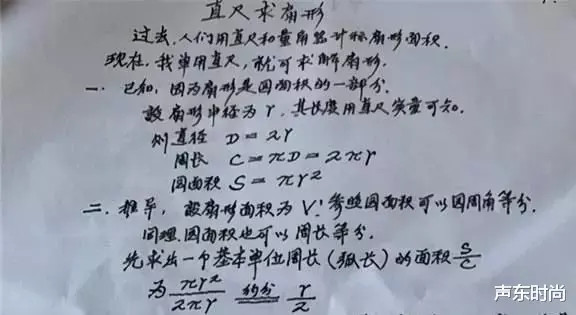 直尺求扇形
过去,人们用直尺和量角器计标扇形面积.
现在,我单用直尺,就可求解扇形.
一. 已知,因为扇形是园面积的一部分.
设扇形半径为r,其长度用直尺实量可知.
则直径 D=2r
周长 C=πD=2πr
园面积 S=πr²
二.推导,设扇形面积为V!参照园面积可以园周角等分.
同理,园面积也可以周长等分.
先求出一个基本单位周长(弧长)的面积 S/C
为 πr²/2πr 约分 r/2
声东时尚